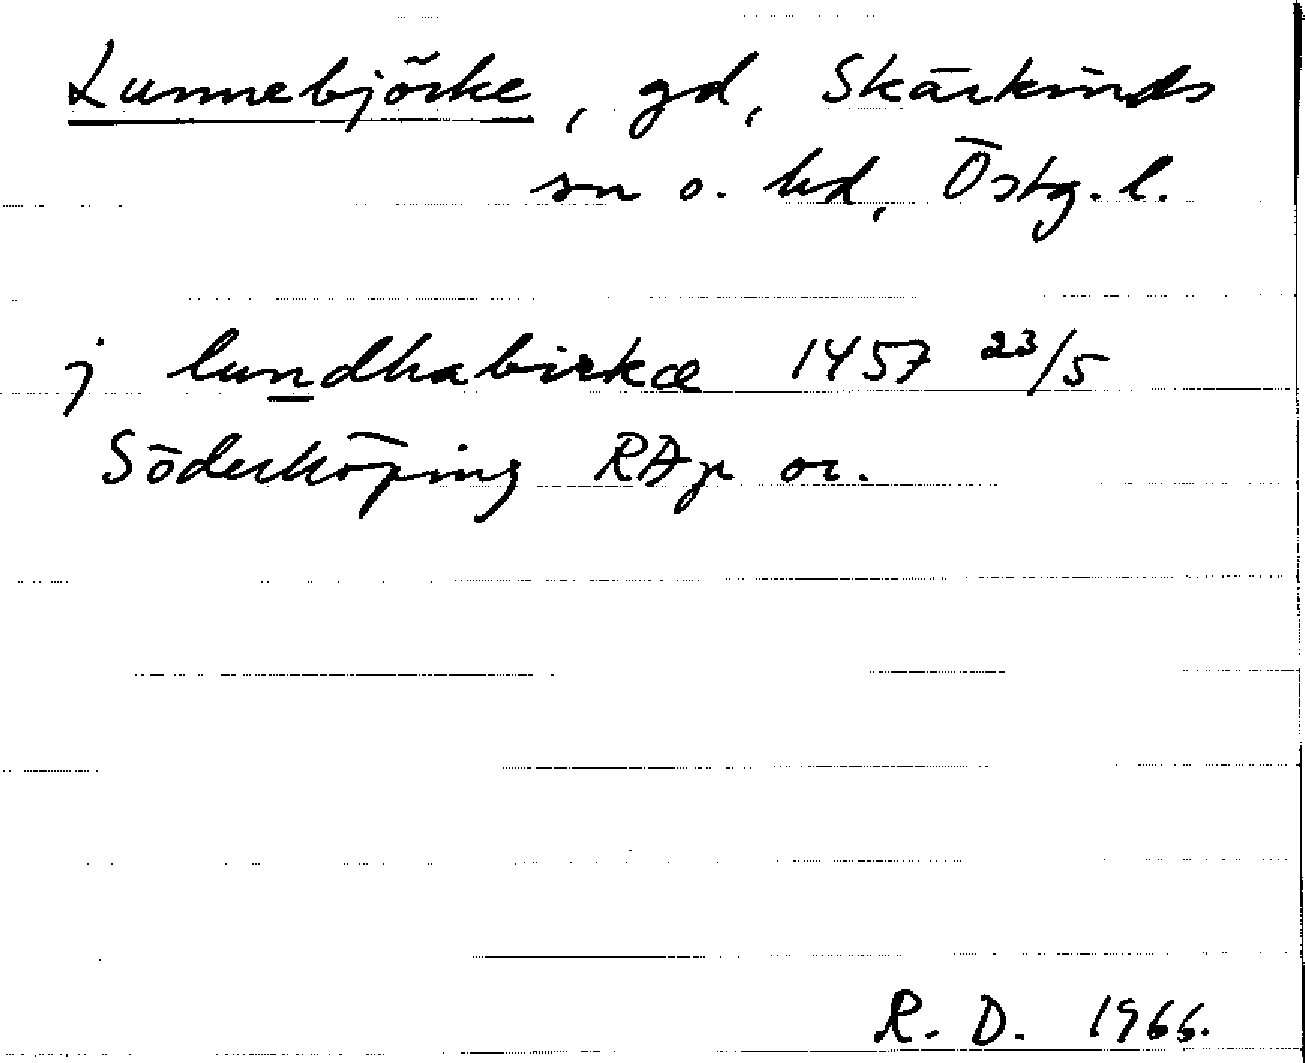 Lunnebjörke, gd, Skärkinds
sn o. hd, Östg. l.
j lundhabirkæ 1457 23/5
Söderköping RAp or.
R. D. 1966.